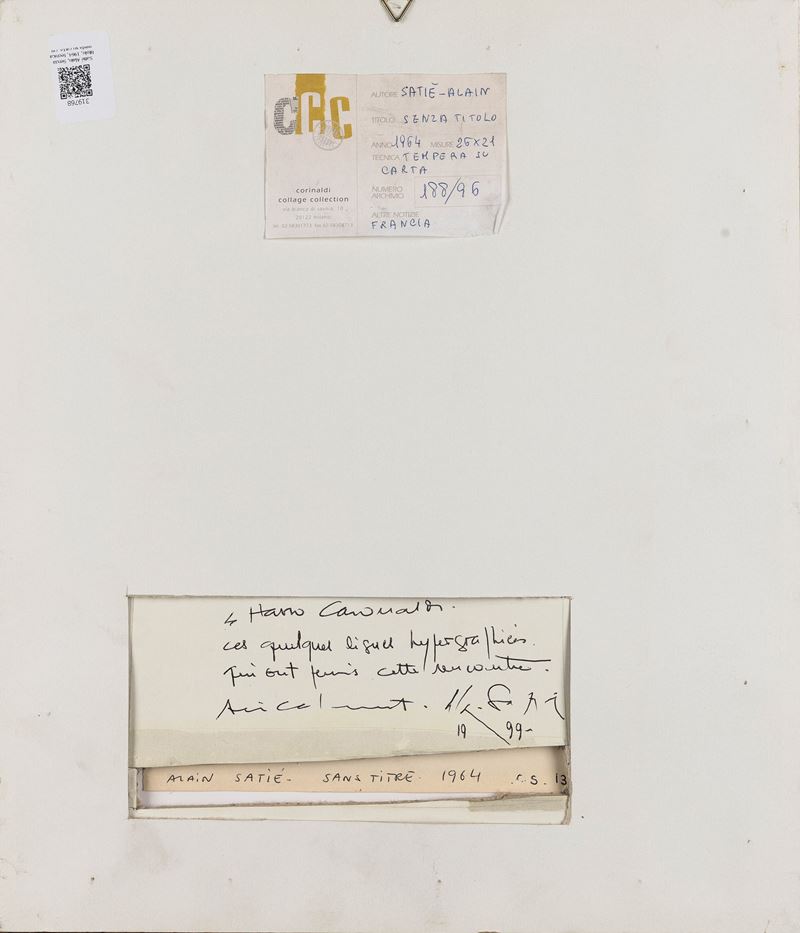 319768
Satié Alain, Senza
titolo, 1964, tecnica
CCC
corinaldi
collage collection
20122 milano
AUTORE SATIÉ-ALAIN
TITOLO SENZA TITOLO
ANNO 1964 MISURE 26X21
TECNICA TEMPERA SU
CARTA
NUMERO
ARCHIVIO 188/96
ALTRE NOTIZIE
FRANCIA
ces quelques lignes hypergraphiées.
qui ont permis cette rencontre.
Amicalement.
19 99-
ALAIN SATIÉ- SANS TITRE- 1964 .S. 13